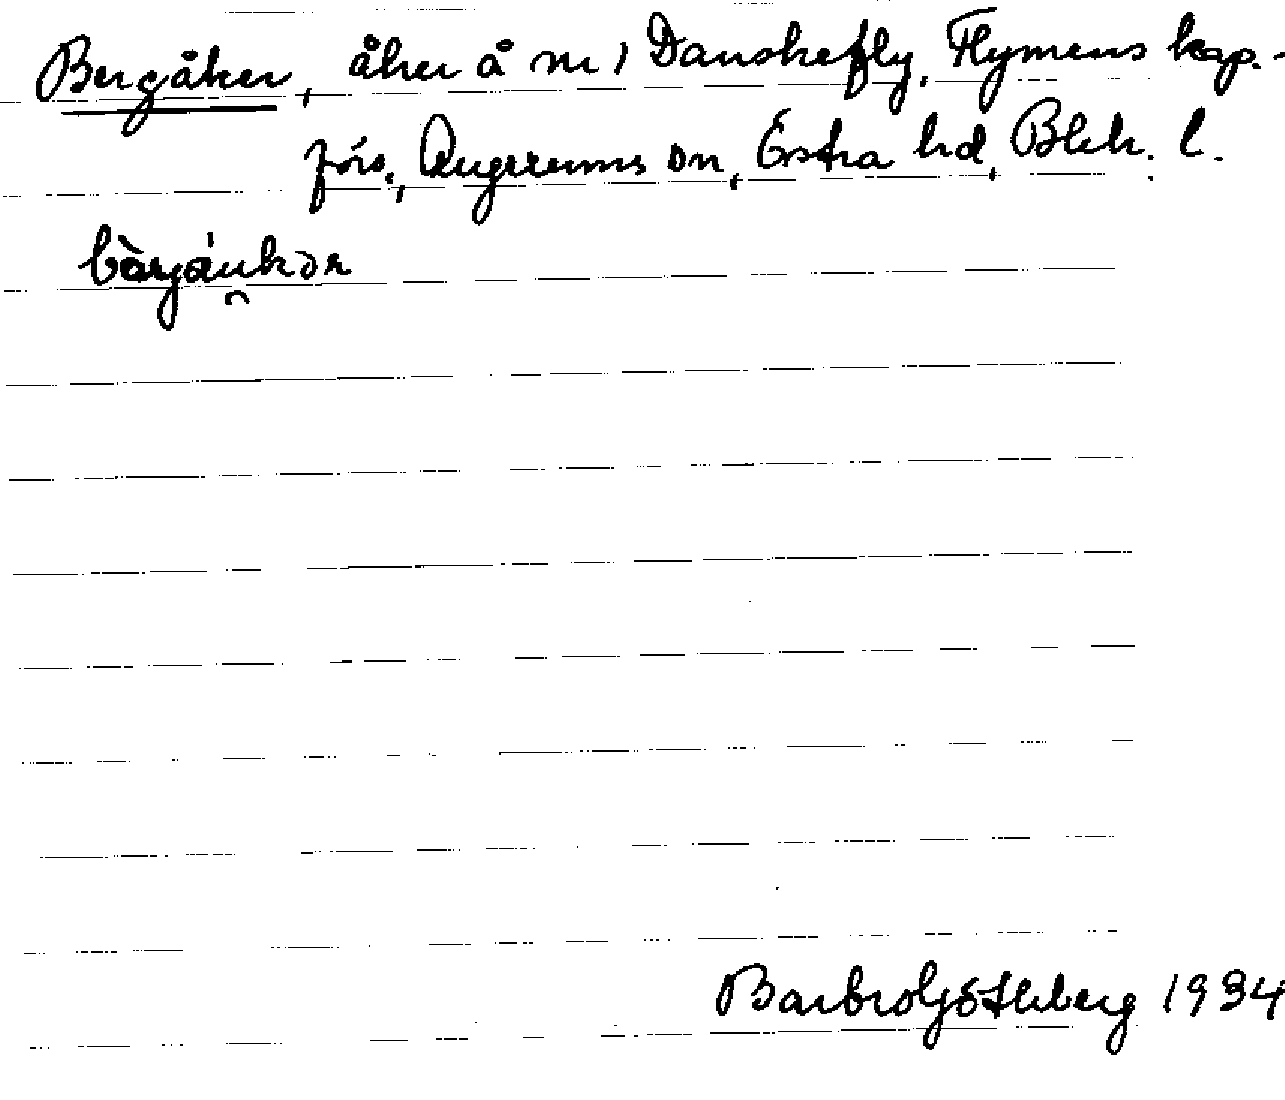 Bergåker, åker å nr 1 Danskefly, Flymens kap.-
förs., Augerums sn, Östra hd, Blek. l.
bàrjáu̯kər
Barbro GötHberg 1934